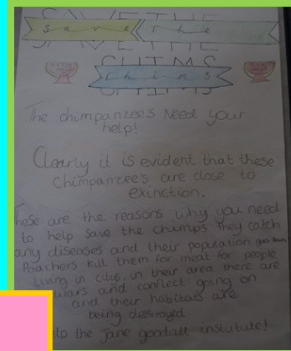 SAVE THE
Save the
CHIMS
Chims
The chimpanzees Need your
help!
Clearly it is evident that these
Chimpanzees are close to
exinction.
These are the reasons why you need
to help save the chimps They catch
any diseases and their population goes down
Poachers kill them for meat for people
living in citis, in their area there are
wars and conflect going on
and their habitats are
being destroyed
the Jane goodall instutute!